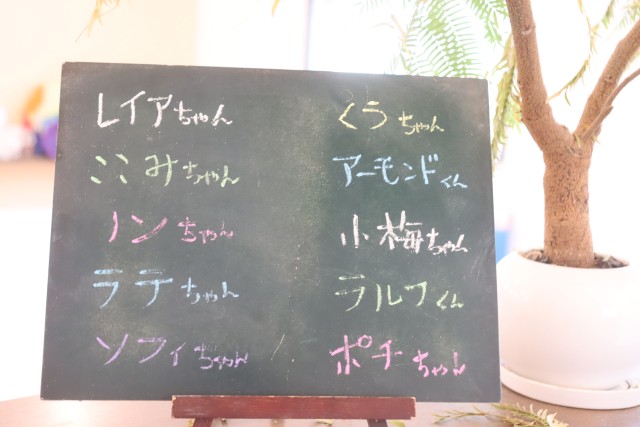 レイアちゃん
ここみちゃん
ノンちゃん
ラテちゃん
ソフィちゃん
くうちゃん
アーモンドくん
小梅ちゃん
ラルフくん
ポチちゃん